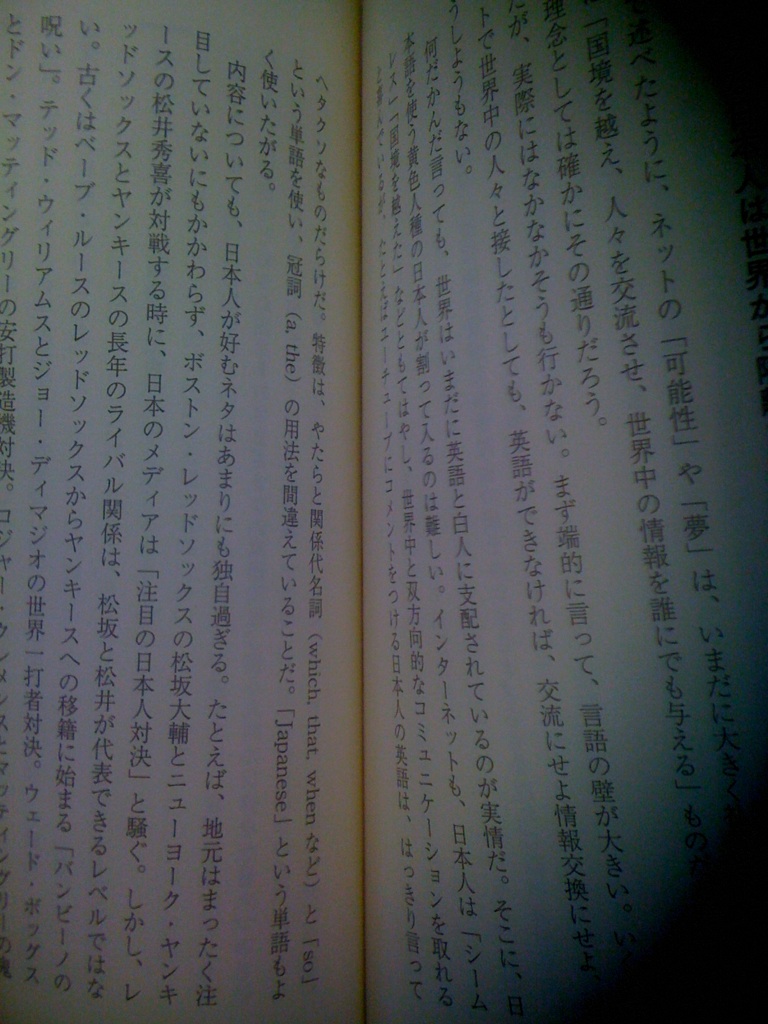 人は世界から
で述べたように、ネットの「可能性」や「夢」は、いまだに大きく
「国境を越え、人々を交流させ、世界中の情報を誰にでも与える」もの
理念としては確かにその通りだろう。
だが、実際にはなかなかそうも行かない。まず端的に言って、言語の壁が大きい。い
トで世界中の人々と接したとしても、英語ができなければ、交流にせよ情報交換にせよ
うしようもない。
何だかんだ言っても、世界はいまだに英語と白人に支配されているのが実情だ。そこに、日
本語を使う黄色人種の日本人が割って入るのは難しい。インターネットも、日本人は「シーム
レス」「国境を越えた」などともてはやし、世界中と双方向的なコミュニケーションを取れる
と喜んでいるが、たとえばユーチューブにコメントをつける日本人の英語は、はっきり言って
ヘタクソなものだらけだ。特徴は、やたらと関係代名詞（which, that, whenなど）と「so」
という単語を使い、冠詞（a, the）の用法を間違えていることだ。「Japanese」という単語もよ
く使いたがる。
内容についても、日本人が好むネタはあまりにも独自過ぎる。たとえば、地元はまったく注
目していないにもかかわらず、ボストン・レッドソックスの松坂大輔とニューヨーク・ヤンキ
ースの松井秀喜が対戦する時に、日本のメディアは「注目の日本人対決」と騒ぐ。しかし、レ
ッドソックスとヤンキースの長年のライバル関係は、松坂と松井が代表できるレベルではな
い。古くはベーブ・ルースのレッドソックスからヤンキースへの移籍に始まる「バンビーノの
呪い」。テッド・ウィリアムスとジョー・ディマジオの世界一打者対決。ウェード・ボッグス
とドン・マッティングリーの安打製造機対決。ロジャー・クレメンスとマッティングリーの